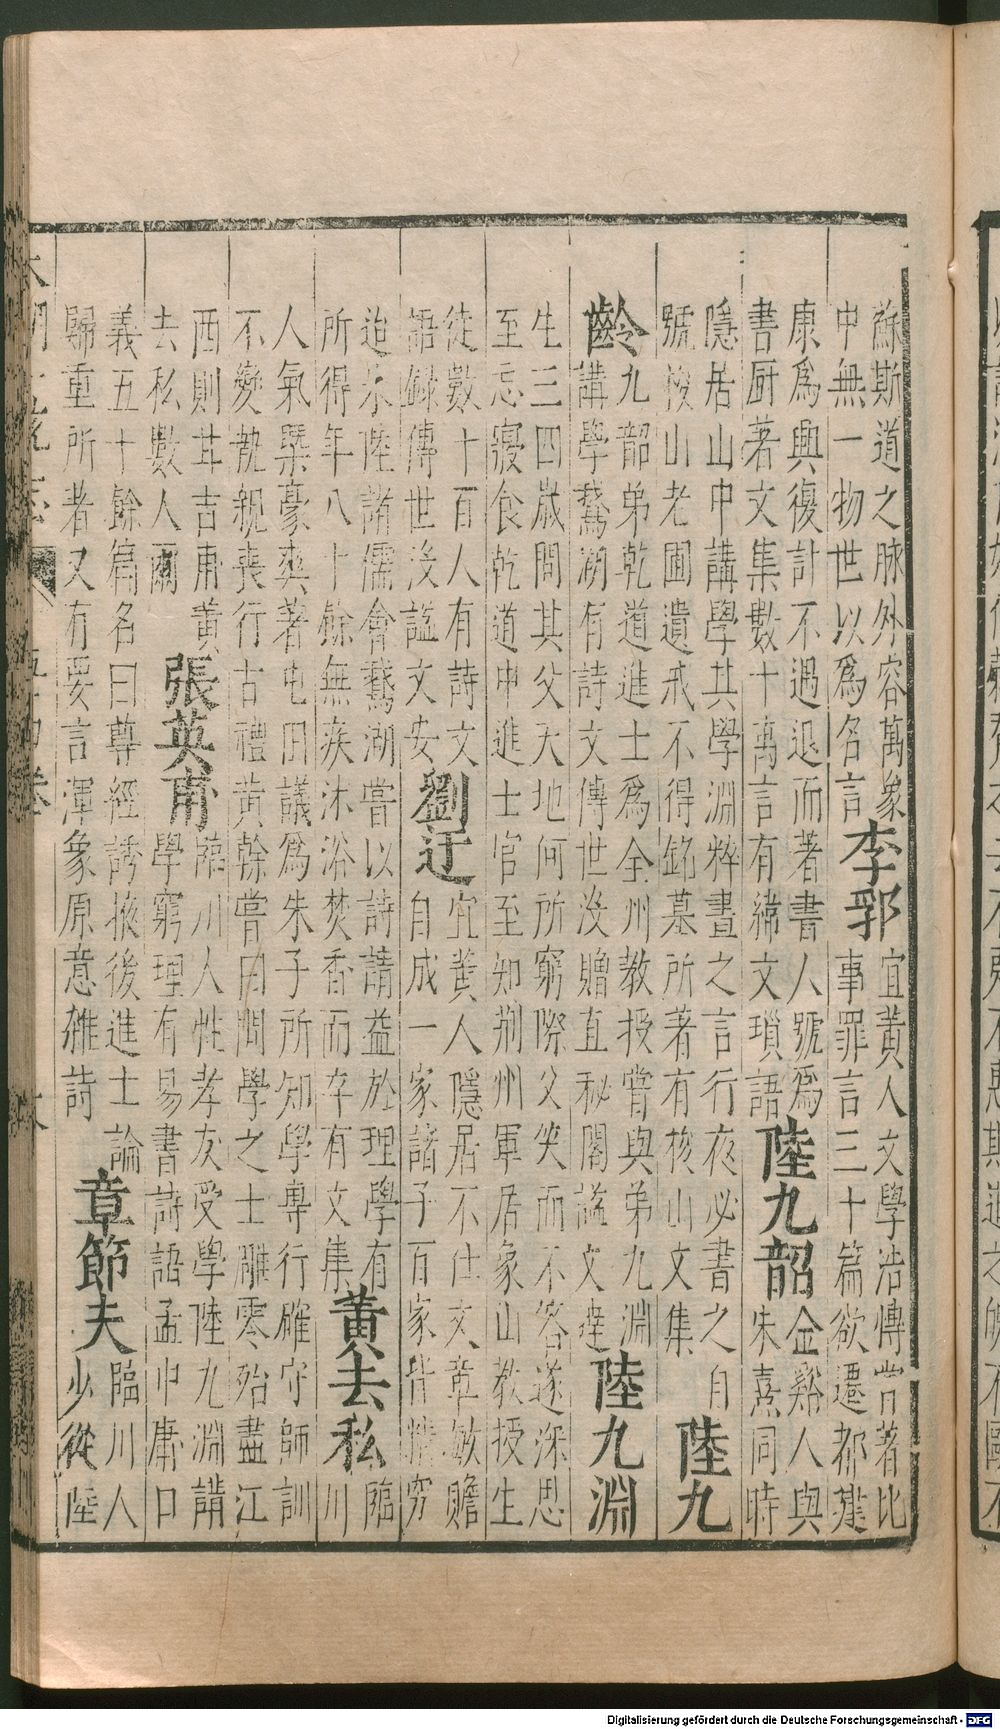 蘇斯道之脉外容萬象
中無一物世以為名言
李郛
宜黃人文學浩博嘗著比
事罪言三十篇欲遷都建
康為興復計不遇退而著書人號為
書厨著文集數十萬言有緯文瑣語
陸九韶
金谿人與
朱熹同時
隱居山中講學其學淵粹晝之言行夜必書之自
號梭山老圃遺戒不得銘墓所著有梭山文集
陸九
齡
九韶弟乾道進士為全州教授嘗與弟九淵
講學鵞湖有詩文傳世沒贈直秘閣謚文達
陸九淵
生三四歲問其父天地何所窮際父笑而不答遂深思
至忘寢食乾道中進士官至知荊州軍居象山教授生
徒數十百人有詩文
語錄傳世沒謚文安
劉迂
宜黃人隱居不仕文章敏贍
自成一家諸子百家皆精究
迨朱陸諸儒會鵞湖嘗以詩請益於理學有
所得年八十餘無疾沐浴焚香而卒有文集
黃去私
臨
川
人氣槩豪爽著屯田議為朱子所知學專行確守師訓
不變執親喪行古禮黃榦嘗曰問學之士雕零殆盡江
西則甘吉甫黃
去私數人爾
張英甫
臨川人性孝友受學陸九淵講
學窮理有易書詩語孟中庸口
義五十餘篇名曰尊經誘掖後進士論
歸重所者又有要言渾象原意雜詩
章節夫
臨川人
少從陸
Digitalisierung gefördert durch die Deutsche Forschungsgemeinschaft - DFG